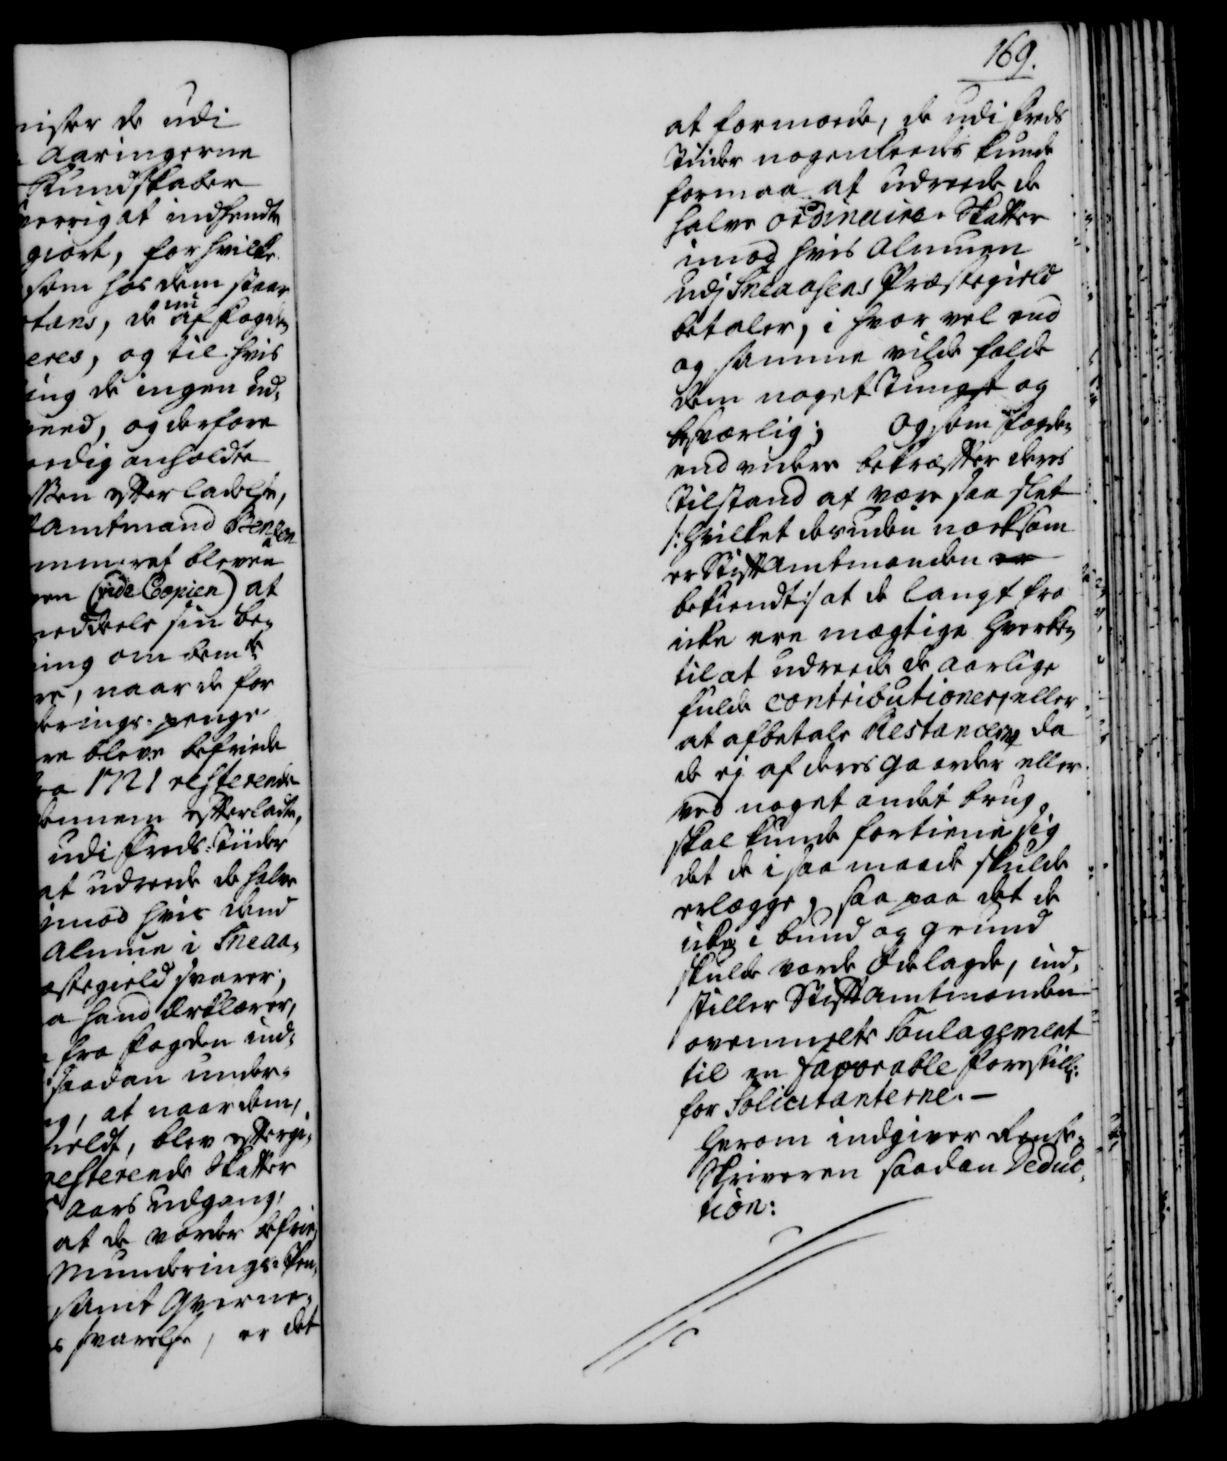 169.
niser de udi
Aaringerne
Kundskaber
verrig at indhendte
giort, for hvilke
som hos dem staar
tans, de nu af Fogden
eres, og til hvis
ing de ingen ud-
meed, og derfore
erdig anholdte
ften efterladelse,
Amtmand Benzon
mmeret bleven
en (vide Copien) at
meddeele sin be-
ning om bemte
re, naar de for
derings-penge
re bleve befriede
fra 1721 resterende
ennem efterladte,
udi Freds-Tiider
at udreede de halve
imod hvis dend
Almue i Sneaa-
æstegield svarer;
a hand Erklærer,
fra Fogden ind-
saadan under-
ng, at naar dem,
meldt, blev efterge-
resterende Skatter
Aars udgang,
at de vorder befrie-
Munderings-Pen-
samt Qverne-
s svarelse, er det
at formode, de udi Freds
Tiider nogenleedes kunde
formaa at udreede de
halve ordinaire Skatter
imod hvis Almuen
udj Sneaasens Præstegield
betaler, i hvor vel end
og samme vilde falde
dem noget Tungt og
besværlig; Og som Fogden
end videre bekræfter deres
Tilstand at være saa slet
/: hvilket desuden noksom
er Stiftamtmanden er
bekiendt :/ at de langt fra
icke ere mægtige hverken
til at udreede de aarlige
fulde Contributioner, eller
at afbetale Restancerne, da
de ej af deres gaarder eller
ved noget andet brug
skal kunde fortiene sig
det de i saa maade skulde
erlægge, saa paa det de
icke i bund og grund
skulde vorde Ødelagde, ind-
stiller Stiftamtmanden
ovenmelte Soulagement
til en favorable Forestill:
for Solicitanterne. -
Herom indgiver Rente-
Skriveren saadan Deduc-
tion: